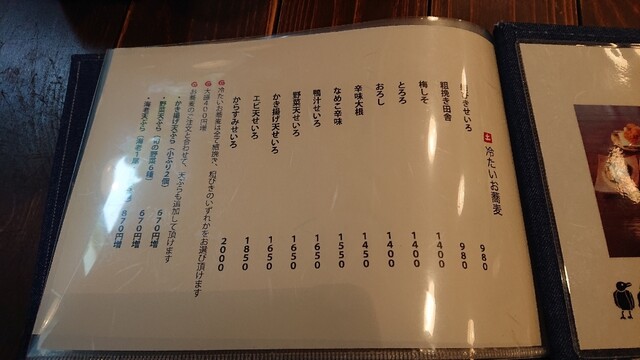 冷たいお蕎麦
せいろ 980
粗挽き田舎 980
梅しそ 1400
とろろ 1400
おろし 1400
辛味大根 1450
なめこ辛味 1550
鴨汁せいろ 1650
野菜天せいろ 1650
かき揚げ天せいろ 1650
エビ天せいろ 1850
からすみせいろ 2000
冷たいお蕎麦は全て細挽き、粗びきのいずれかをお選び頂けます
大盛400円増
お蕎麦のご注文と合わせて、天ぷらも追加して頂けます
・かき揚げ天ぷら(小ぶり2個) 670円増
・野菜天ぷら(旬の野菜6種) 670円増
・海老天ぷら(海老 870円増